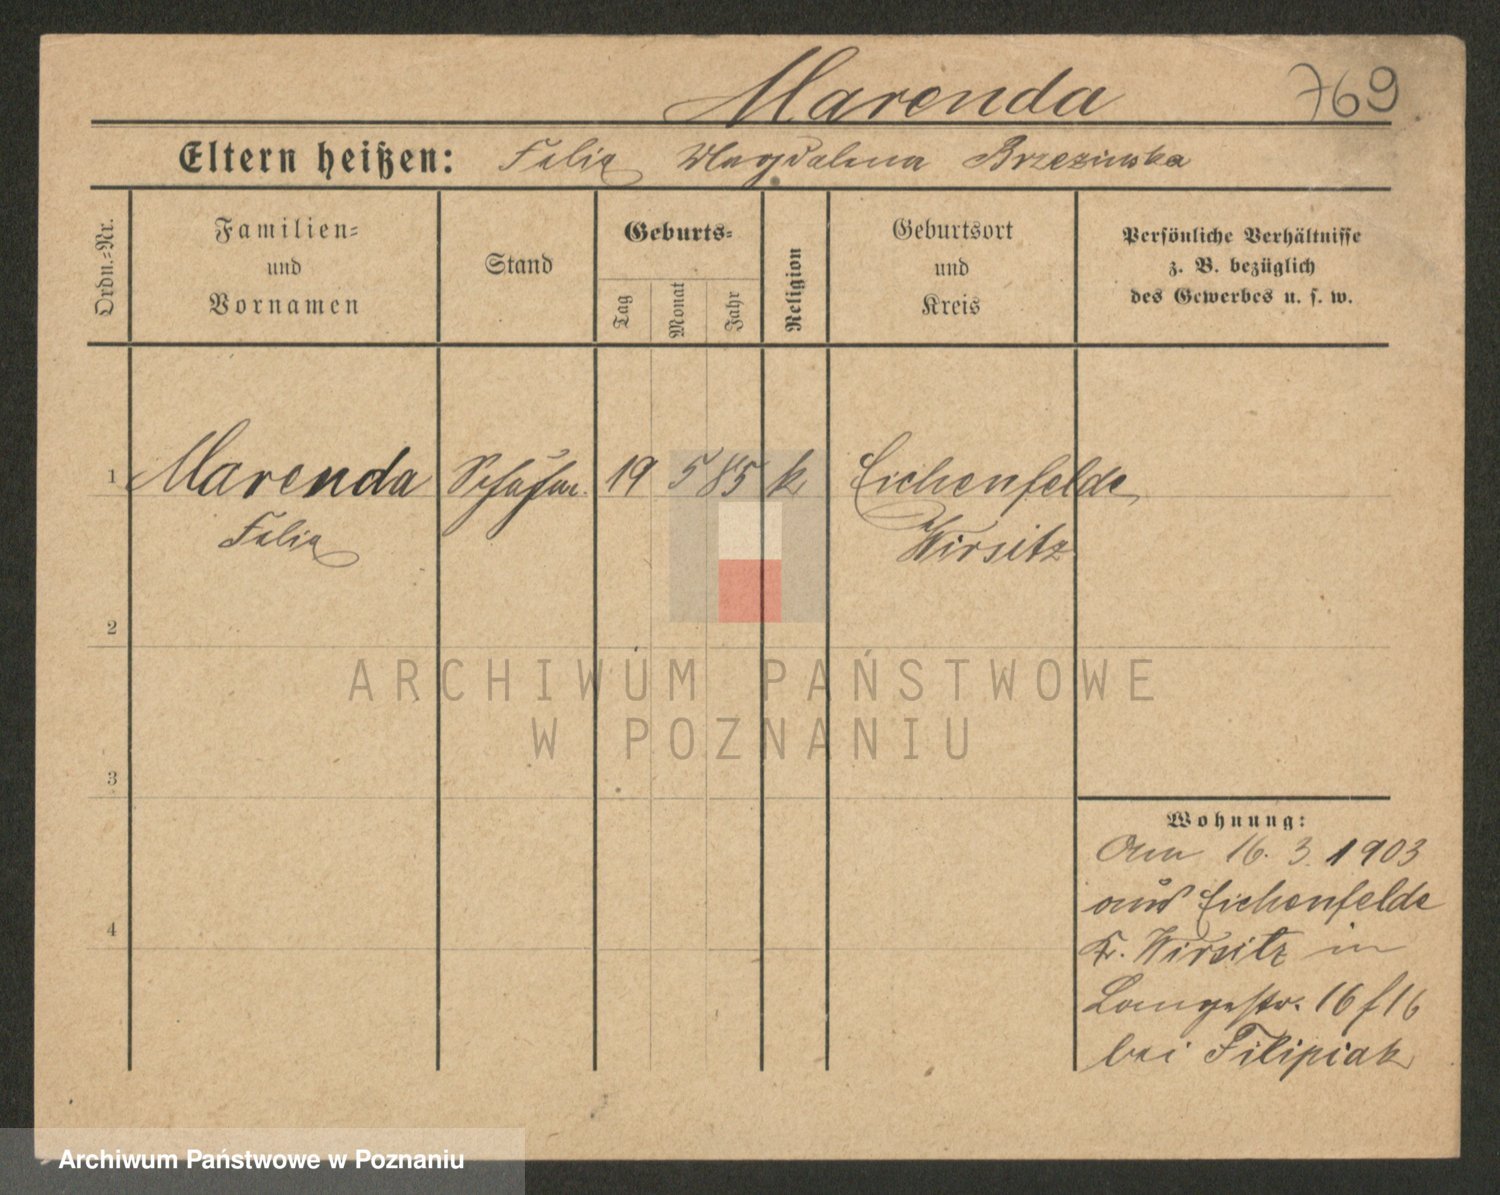 Marenda 769
Eltern heißen: Felix Magdalena Brzezinska
Ordn.-Nr.
Familien-
und
Vornamen
Stand
Geburts-
Tag
Monat
Jahr
Religion
Geburtsort
und
Kreis
Persönliche Verhältnisse
z. B. bezüglich
des Gewerbes u. s. w.
1 Marenda 19 5 85 k Eichenfelde
Felix Wirsitz
2
ARCHIWUM PAŃSTWOWE
W POZNANIU
3
Wohnung:
Am 16. 3. 1903
aus Eichenfelde
Kr. Wirsitz in
4
Langestr. 16
bei Filipiak
Archiwum Państwowe w Poznaniu